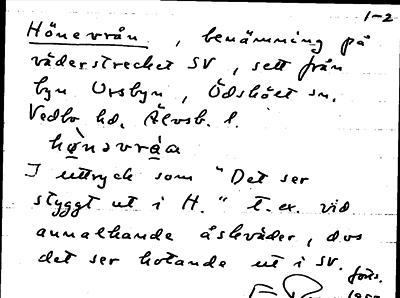 1-2
Hönevrån, benämning på
väderstrecket SV, sett från
byn Ursbyn, Ödskölt sn.
Vedbo hd. Älvsb. l.
hø̀nəvráa
I uttryck som "Det ser
styggt ut i H." t.ex. vid
annalkande åskväder, dvs
det ser hotande ut i SV.
forts.